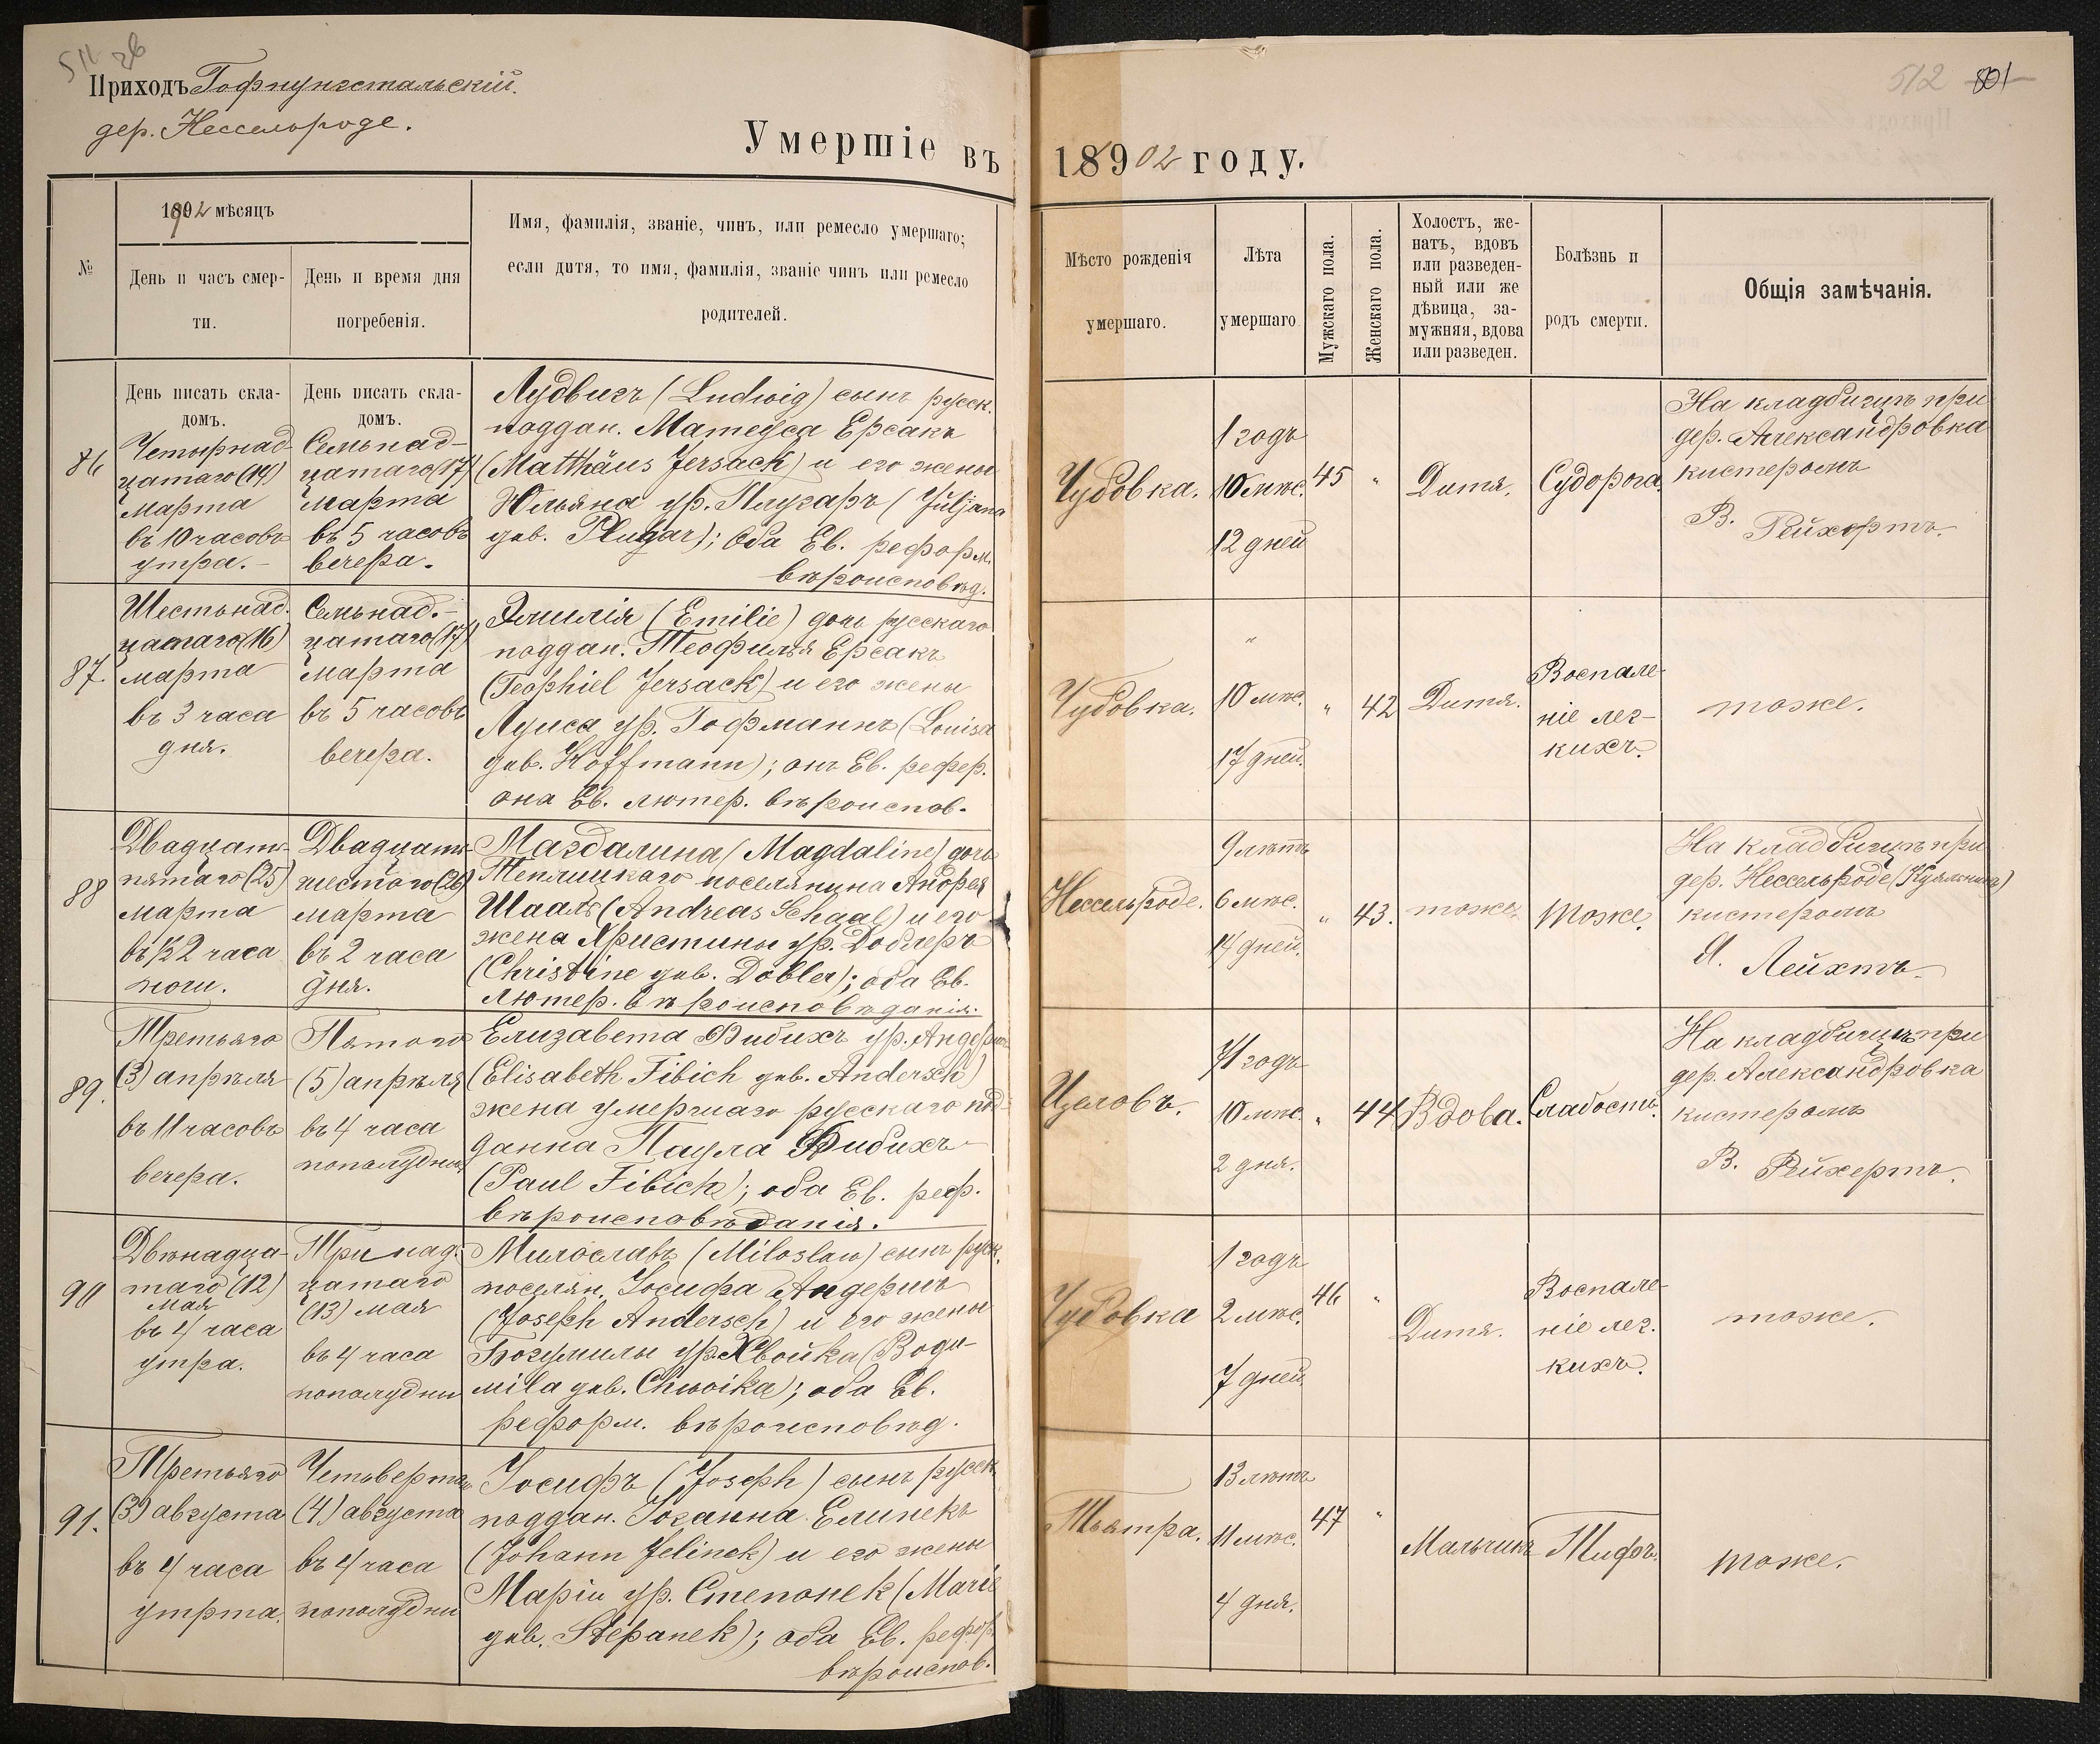 511 26
Приходъ Гофнунгстальскій.
дер. Нессельроде.
Умершіе въ
№
1902 мѣсяцъ
День и часъ смер-
ти.
День и время дня
погребенія.
Имя, фамилія, званіе, чинъ, или ремесло умершаго;
если дитя, то имя, фамилія, званіе чинъ или ремесло
родителей.
День писать скла-
домъ.
День писать скла-
домъ.
86
Четырнад-
цатаго (14)
марта
въ 10 часовъ
утра.-
Семьнад-
цатаго (17)
марта
въ 5 часовъ
вечера.
Лудвигъ (Ludwig) сынъ русск.
поддан. Матеуса Ерсакъ
(Matthäus Jersack) и его жены
Юльяна ур. Плугаръ (Juljana
gеb. Plugar); оба Ев. реформ.
вѣроисповѣд.
87.
Шестьнад.
цатаго (16)
марта
въ 3 часа
дня.
Семьнад.-
цатаго (17)
марта
въ 5 часовъ
вечера.
Эмилія (Emilie) дочь русскаго
поддан. Теофиля Ерсакъ
(Teophiel Jersack) и его жены
Луиса ур. Гофманнъ (Louisa
geb. Hoffmann); онъ Ев. рефер.
она Ев. лютер. вѣроиспов.
88
Двадцать-
пятаго (25)
марта
въ 12 часа
ночи.
Двадцать-
шестого (26)
марта
въ 2 часа
дня.
Магдалина (Magdaline) дочь
Теплицкаго поселянина Андрея
Шааль (Andreas Schaal) и его
жена Христины ур. Доблеръ
(Christine geb. Dobler); оба Ев.
Лютер. вѣроисповѣданія.
89.
Третьяго
(3) апрѣля
въ 11 часовъ
вечера.
Пятого
(5) апрѣля
въ 4 часа
пополудни
Елизавета Фибихъ ур. Андершъ
(Elisabeth Fibich geb. Andersch)
жена умершаго русскаго под-
данна Паула Фибихъ
(Paul Fibich); оба Ев. реф.
вѣроисповѣданія.
90
Двѣнадца-
таго (12)
мая
въ 4 часа
утра.
Тринад.
цатаго
(13) мая
въ 4 часа
пополудни
Милославъ (Miloslaw) сынъ русск.
поселян. Іосифа Андершъ
(Joseph Andersch) и его жены
Богумилы ур. Хвойка (Bogu-
mila geb. Chwoika); оба Ев.
реформ. вѣроисповѣд.
91.
Третьяго
(3) августа
въ 4 часа
утрта.
Четвертаго
(4) августа
въ 4 часа
пополудни
Іосифъ (Joseph) сынъ русск.
поддан. Іоганна Елинекъ
(Johann Jelinek) и его жены
Маріи ур. Степонек (Marie
geb. Stepanek); оба Ев. рефор.
вѣроиспов.
512 801
18902 году.
Мѣсто рожденія
умершаго.
Лѣта
умершаго
Мужскаго пола.
Женскаго пола.
Холостъ, же-
натъ, вдовъ
или разведен-
ный или же
дѣвица, за-
мужняя, вдова
или разведен.
Болѣзнь и
родъ смерти.
Общія замѣчанія.
Чубовка.
1 годъ
10 мѣс.
12 дней
45
"
Дитя.
Судорога.
На кладбищѣ при
дер. Александровка
кистеромъ
В. Рейхертъ.
Чубовка.
"
10 мѣс.
17 дней.
"
42
Дитя.
Воспале-
ніе лег-
кихъ.
тоже.
Нессельроде.
9 лѣтъ
6 мѣс.
14 дней.
"
43.
тоже.
Тоже.
На кладбищѣ при
дер. Нессельроде (Куяльникъ)
кистеромъ
Я. Лейхтъ
Целовъ.
71 годъ
10 мѣс.
2 дня.
"
44
Вдова.
Слабость.
На кладбищѣ при
дер. Александровка
кистеромъ
В. Рейхертъ.
Чубовка
1 годъ
2 мѣс.
7 дней.
46
"
Дитя.
Воспале-
ніе лег.
кихъ.
тоже.
13 лѣтъ
11 мѣс.
4 дня.
47
"
Мальчикъ
Тифъ.
тоже.